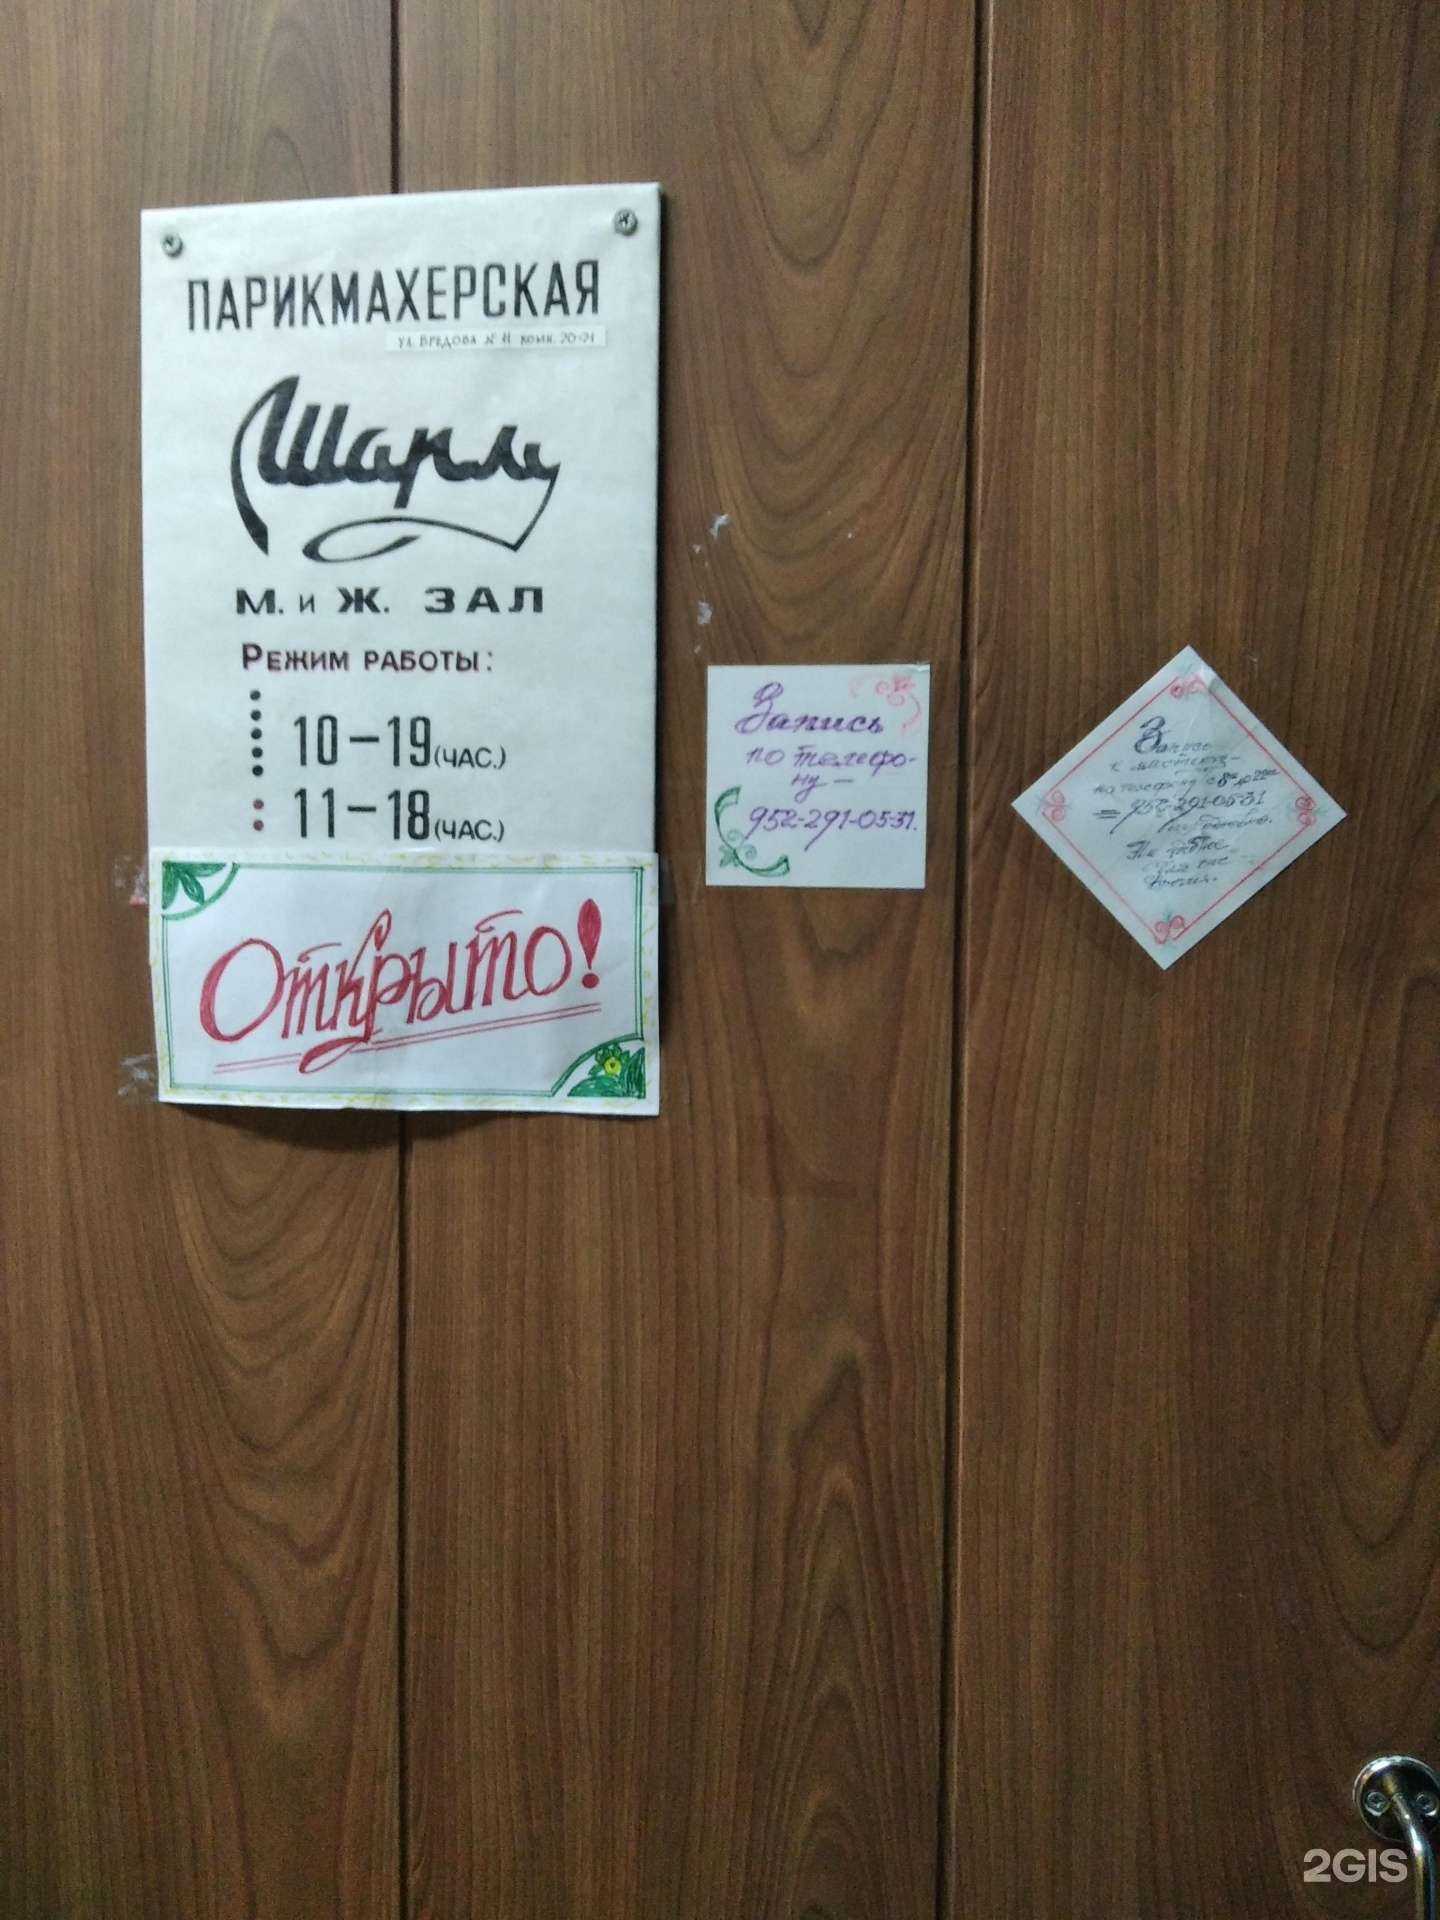 ПАРИКМАХЕРСКАЯ
ул. БРЕДОВА № 11 комн. 20-21
Шарм
М. и Ж. ЗАЛ
РЕЖИМ РАБОТЫ:
10-19 (ЧАС.)
11-18 (ЧАС.)
Открыто!
Запись
по телефо-
ну —
952-291-05-31.
Запись
к мастеру
по телефону с 8 до
= 952-291-05-31
2GIS